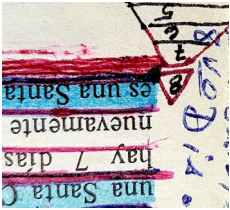 una Santa
hay 7 días
nuevamente
es una Santa
8
7
6
5